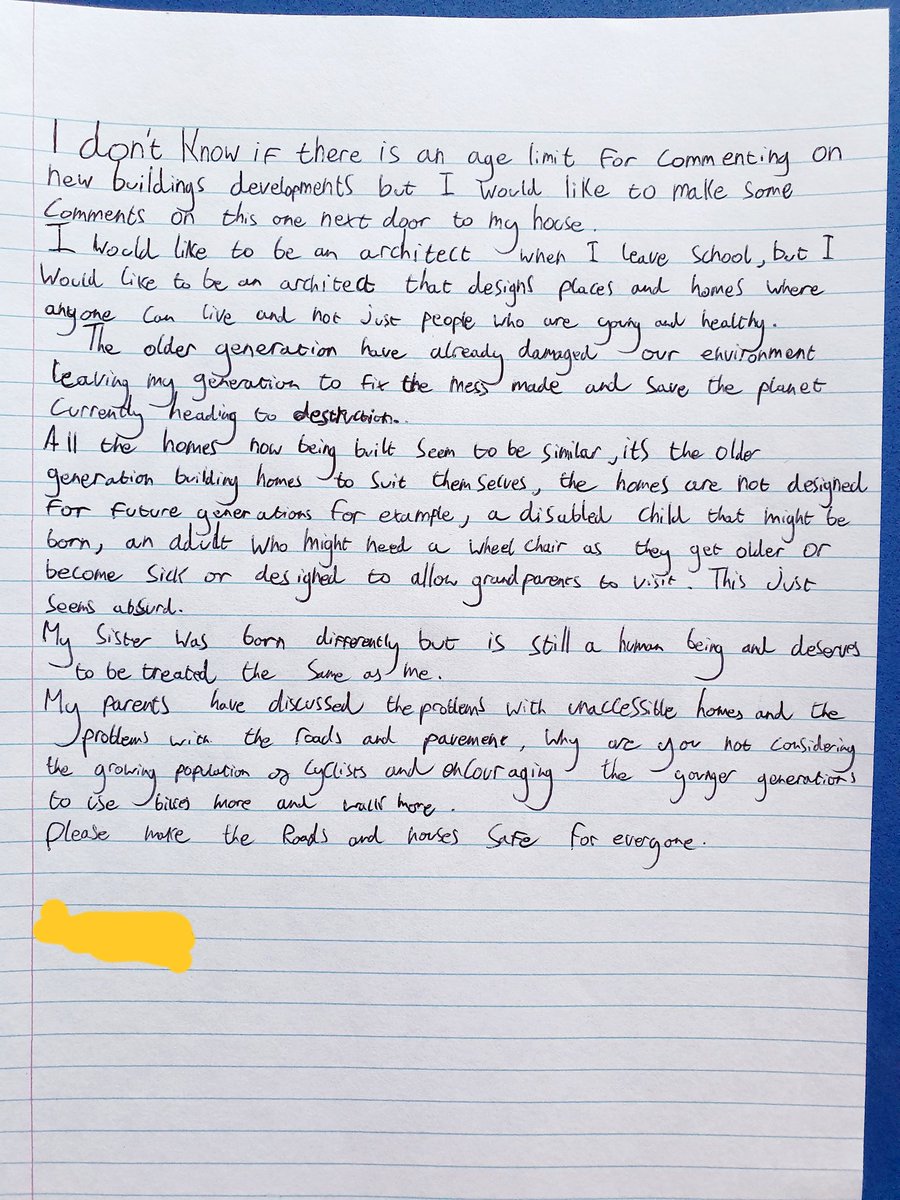 I don't know if there is an age limit for commenting on
new buildings developments but I would like to make some
Comments on this one next door to my house.
I would like to be an architect when I leave school, but I
would like to be an architect that designs places and homes where
anyone can live and not just people who are young and healthy.
The older generation have already damaged our environment
leaving my generation to fix the mess made and save the planet
Currently heading to destruction.
All the homes now being built seem to be similar, its the older
generation building homes to suit themselves, the homes are not designed
for future generations for example, a disabled child that might be
born, an adult who might need a wheel chair as they get older or
become sick or designed to allow grandparents to visit. This just
seems absurd.
My sister was born differently but is still a human being and deserves
to be treated the same as me.
My parents have discussed the problems with unaccessible homes and the
problems with the roads and pavement, why are you not considering
the growing population of cyclists and encouraging the younger generations
to use bikes more and walk more.
Please make the Roads and houses safe for everyone.